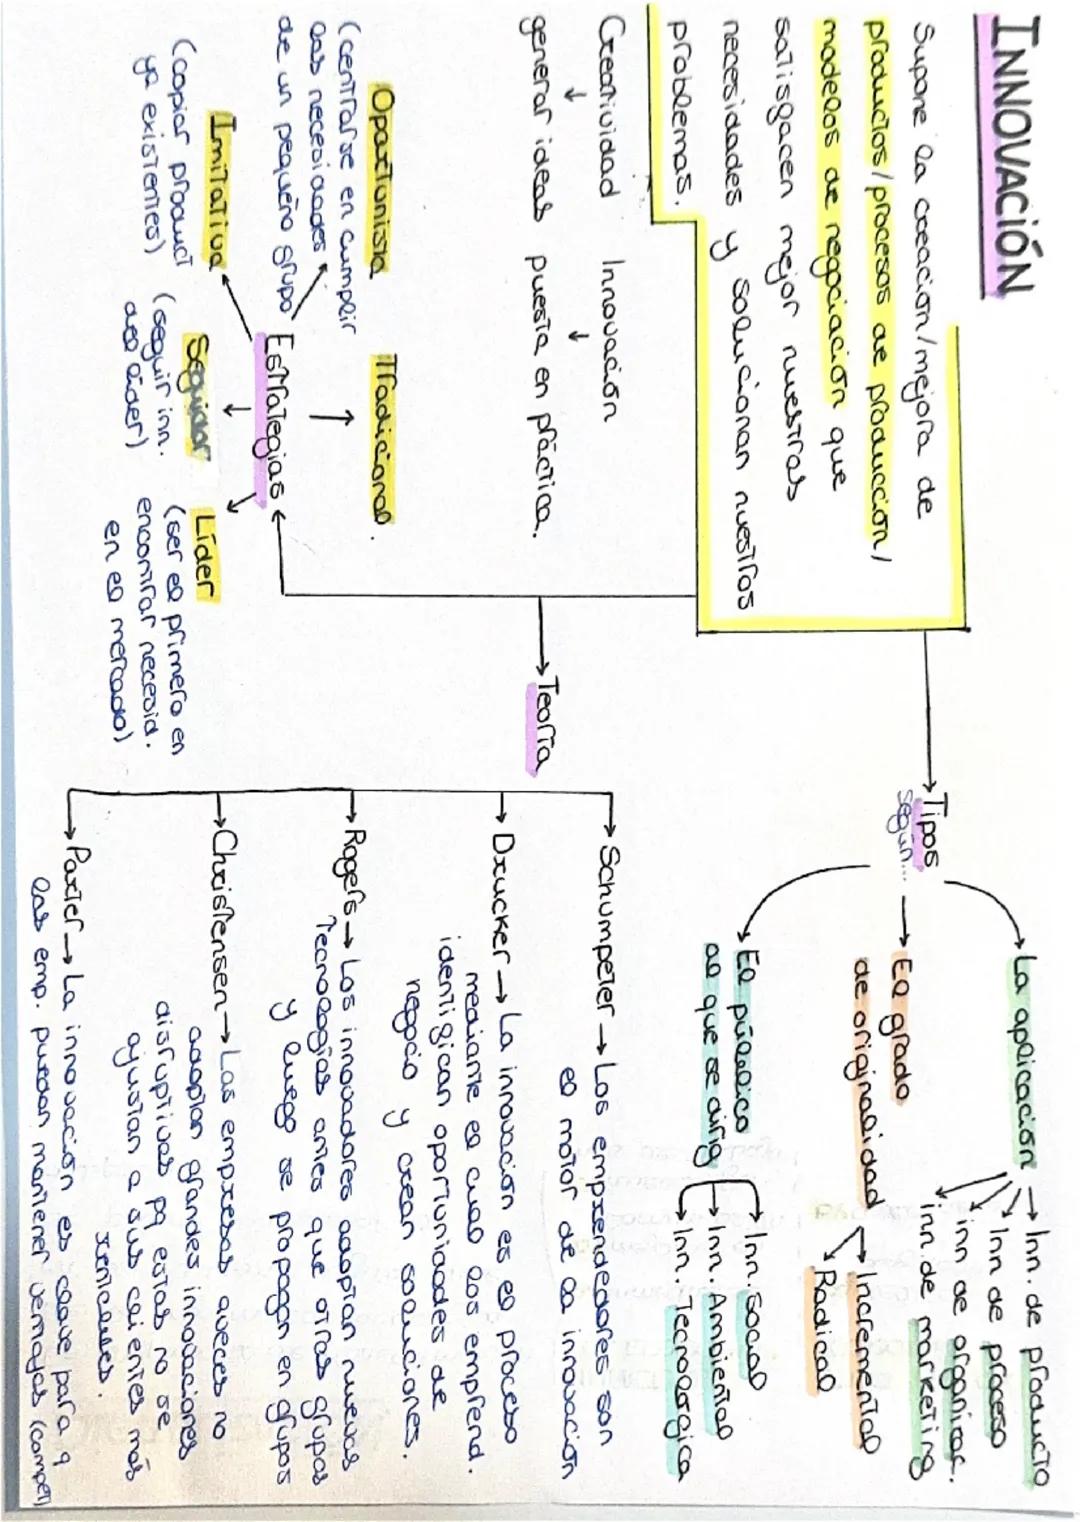 INNOVACIÓN
Supone la creación/mejora de
productos/procesos de producción/
modelos de negociación que
satisfacen mejor nuestras
necesidades y solucionan nuestros
problemas.
Creatividad Innovación
generar ideas puesta en práctica.
Tipos
según...
La aplicación
Inn. de producto
Inn de proceso
inn de organizac.
inn de marketing
El grado
de originalidad
Incremental
Radical
El público
al que se dirige
Inn. Social
Inn. Ambiental
Inn. Tecnológica
Teoría
Schumpeter → Los emprendedores son
el motor de la innovación
Drucker → La innovación es el proceso
mediante el cual los emprend.
identifican oportunidades de
negocio y crean soluciones.
Rogers → Los innovadores adoptan nuevas
Tecnologías antes que otros grupos
y luego se propagan en grupos
Christensen → Las empresas aveces no
adoptan grandes innovaciones
disruptivas pq estas no se
ajustan a sus clientes más
rentables.
Porter → La innovación es clave para q
las emp. puedan mantener ventajas (compet
Estrategias
Oportunista
(centrarse en cumplir
las necesidades
de un pequeño grupo
Tradicional.
Imitativa
(copiar product
ya existentes)
Seguidor
(seguir inn.
del líder)
Líder
(ser el primero en
encontrar necesid.
en el mercado)